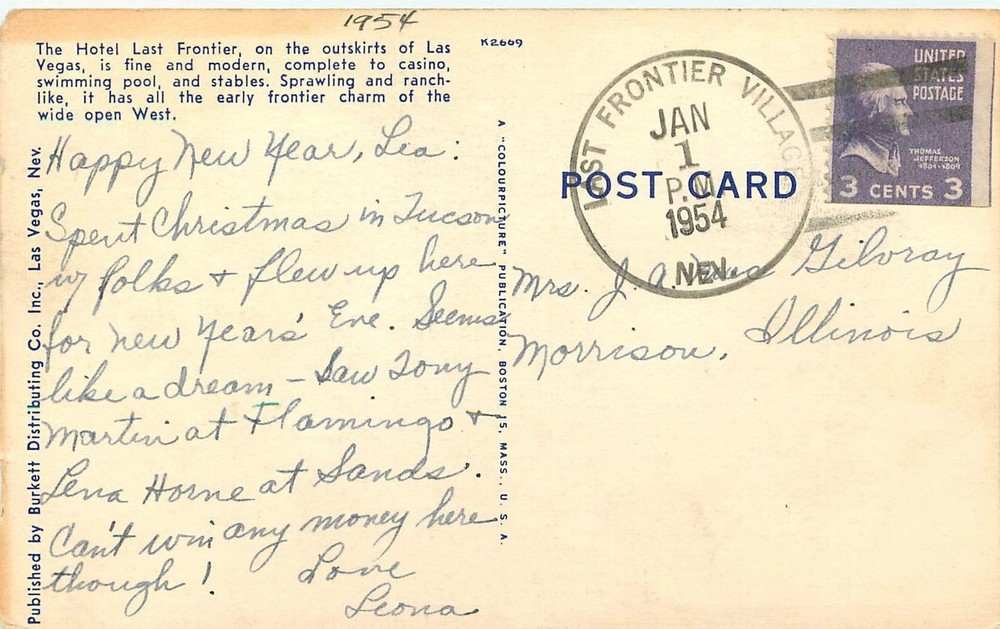 1954
The Hotel Last Frontier, on the outskirts of Las
Vegas, is fine and modern, complete to casino,
swimming pool, and stables. Sprawling and ranch-
like, it has all the early frontier charm of the
wide open West.
K2669
Happy New Year, Lea:
Spent Christmas in Tucson
w/ folks + flew up here
for New Years' Eve. Seems
like a dream – Saw Tony
Martin at Flamingo +
Lena Horne at Sands.
Can't win any money here
though! Love
Leona
Published by Burkett Distributing Co. Inc., Las Vegas, Nev.
A "COLOURPICTURE" PUBLICATION, BOSTON 15, MASS., U. S. A.
POST CARD
LAST FRONTIER VILLAGE
JAN
1
P.M.
1954
NEV.
UNITED
STATES
POSTAGE
THOMAS
JEFFERSON
1801-1809
3 CENTS 3
Mrs. J. A. Gilvray
Morrison, Illinois